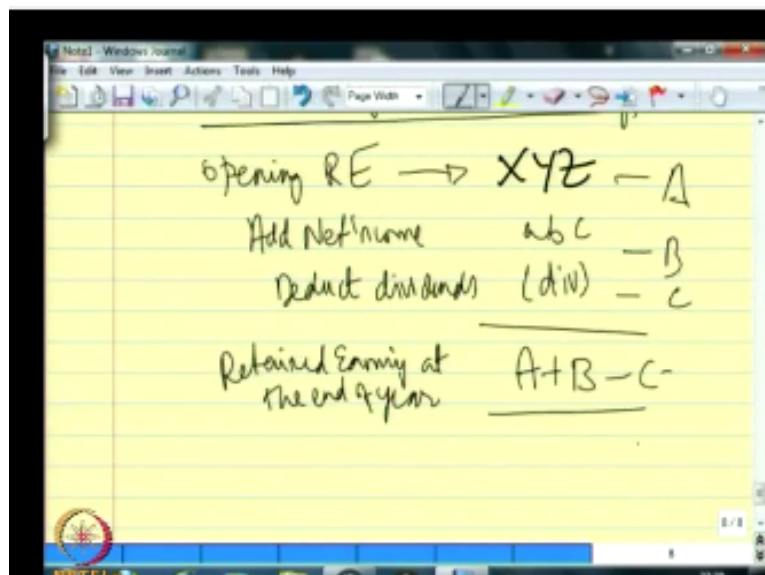 Note1 - Windows Journal
File Edit View Insert Actions Tools Help
Page Width
opening RE → XYZ — A
Add Net income abc — B
Deduct dividends (div) — C
Retained Earning at A+B-C
the end of year
8/8
8
NPTEL